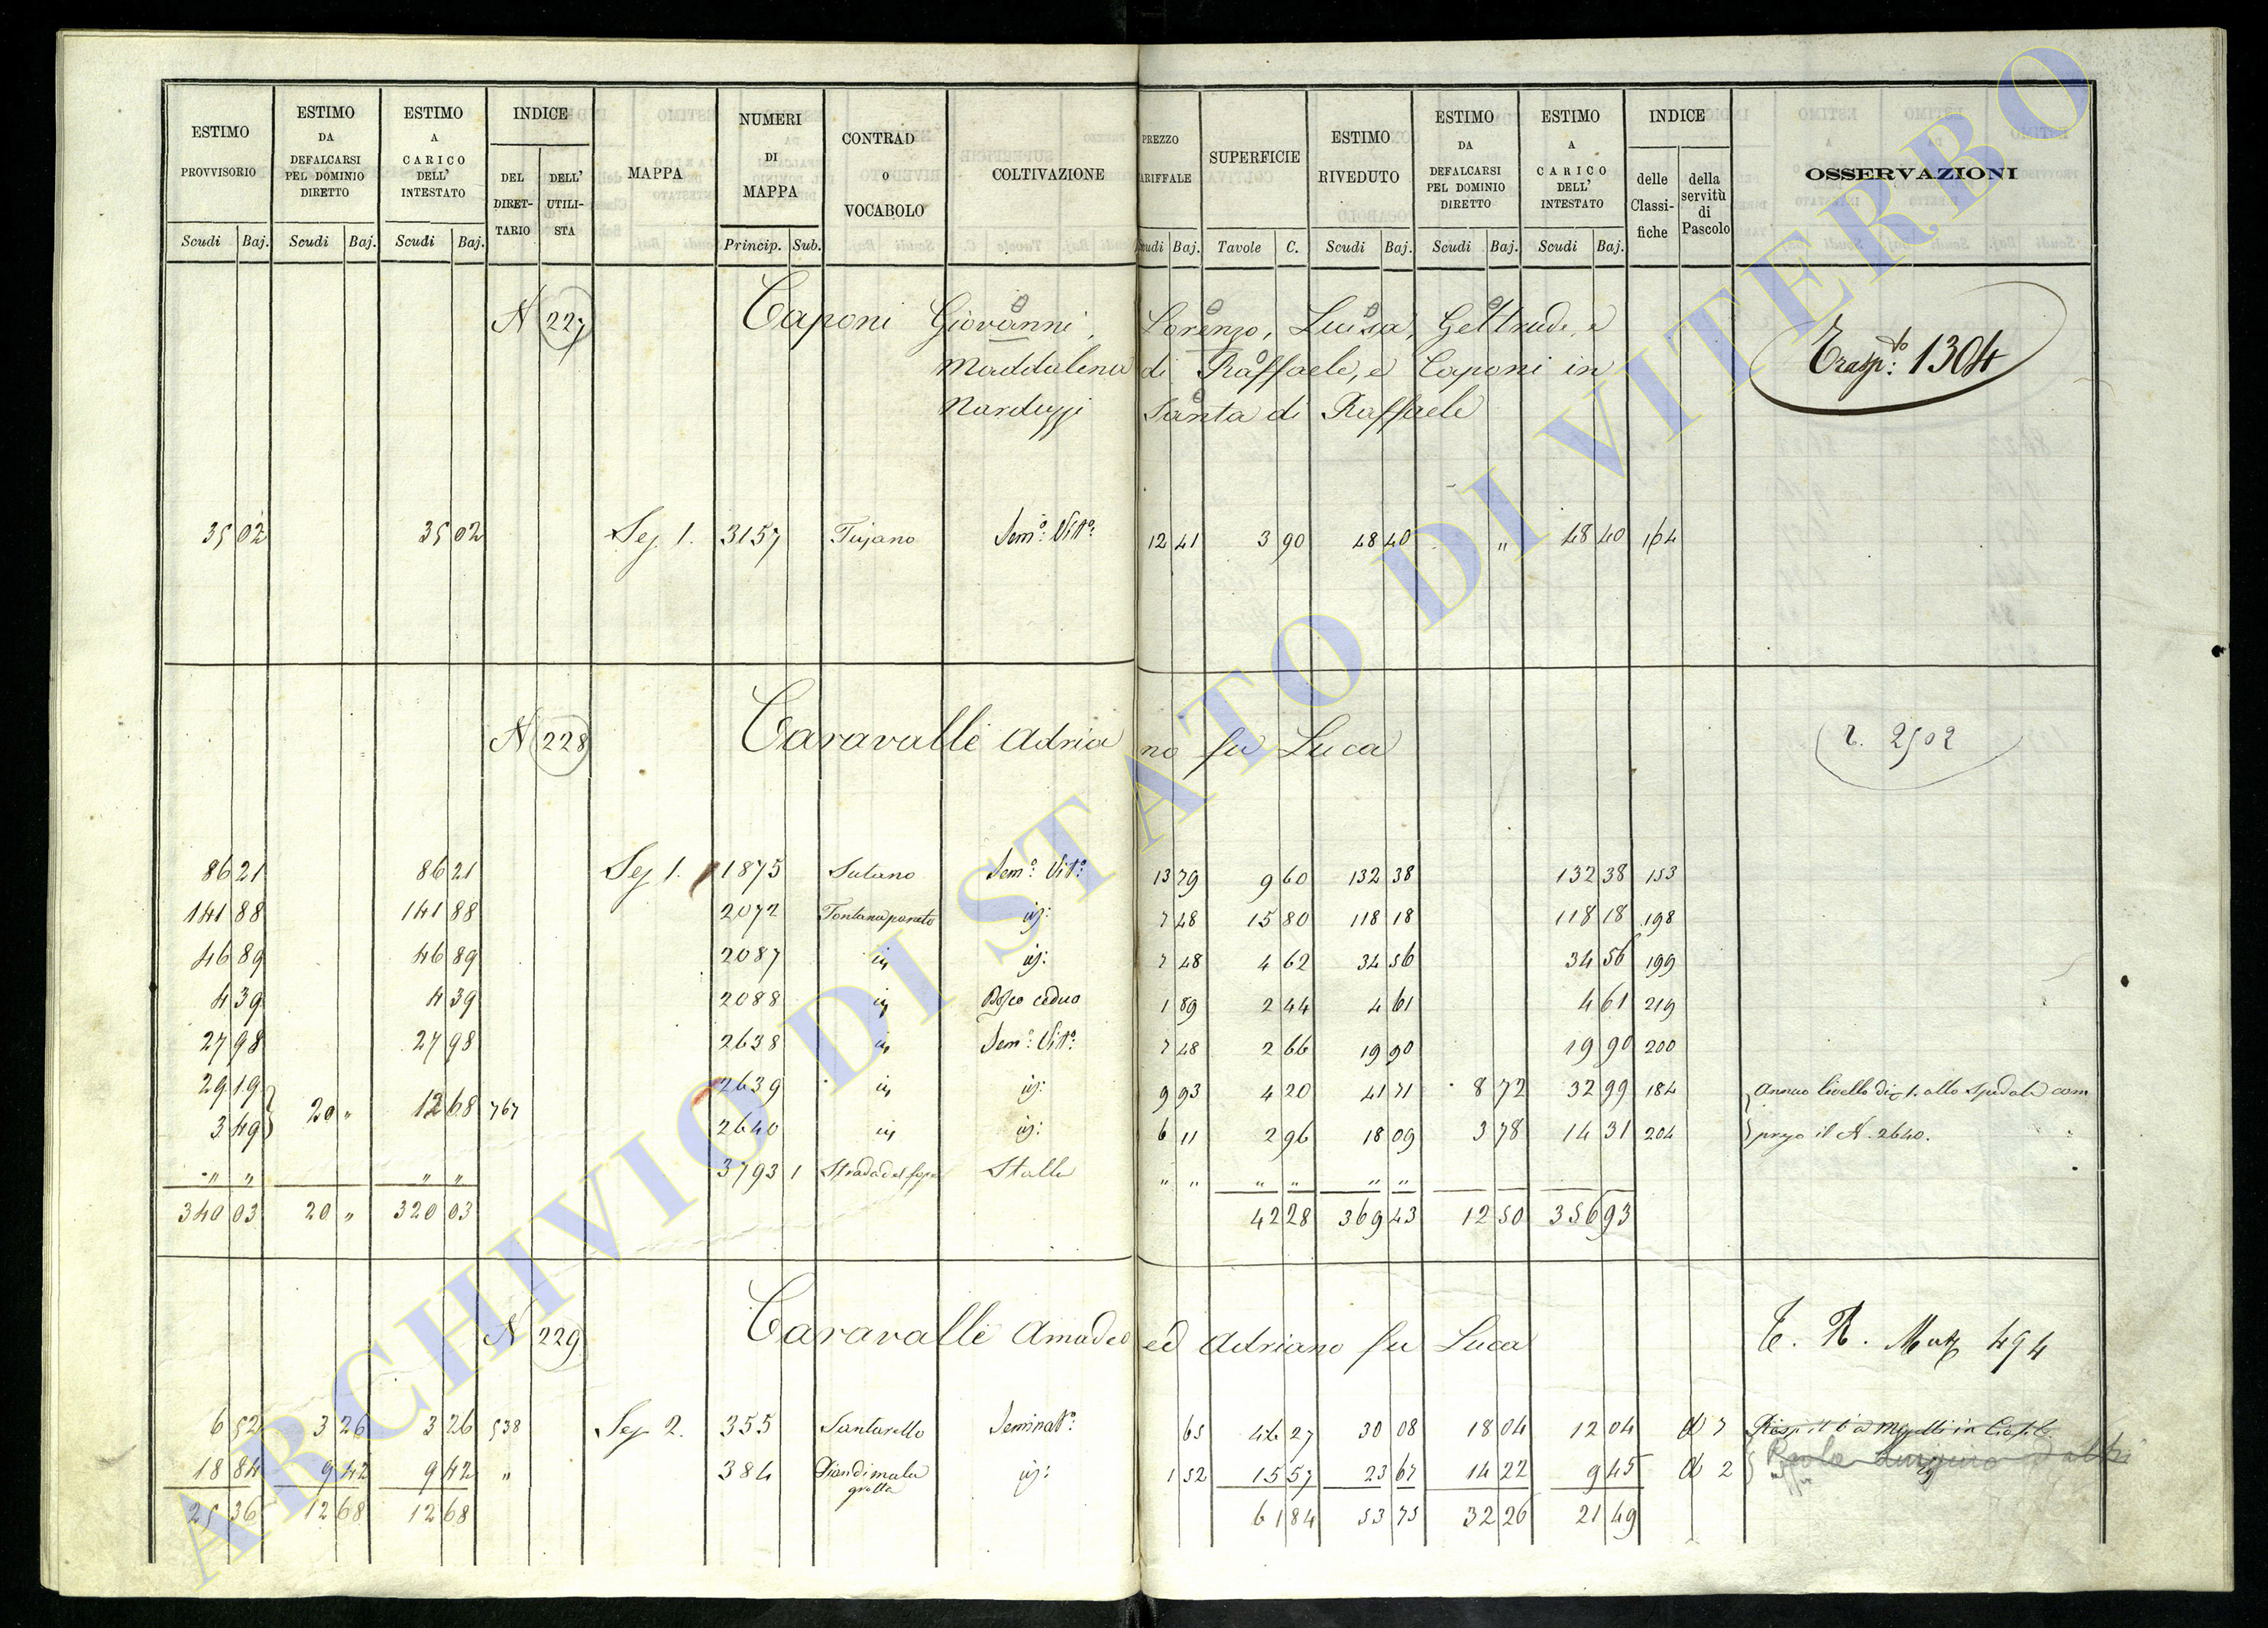 ESTIMO PROVVISORIO | ESTIMO DA DEFALCARSI PEL DOMINIO DIRETTO | ESTIMO A CARICO DELL' INTESTATO | INDICE DEL DIRET-TARIO | DELL' UTILI-STA | MAPPA | NUMERI DI MAPPA | CONTRAD O VOCABOLO | COLTIVAZIONE | PREZZO ARIFFALE | SUPERFICIE | ESTIMO RIVEDUTO | ESTIMO DA DEFALCARSI PEL DOMINIO DIRETTO | ESTIMO A CARICO DELL' INTESTATO | INDICE delle Classi-fiche | della servitù di Pascolo | OSSERVAZIONI
Scudi | Baj. | Scudi | Baj. | Scudi | Baj. | Princip. | Sub. | cudi | Baj. | Tavole | C. | Scudi | Baj. | Scudi | Baj. | Scudi | Baj.
N 227 Caponi Giovanni, Lorenzo, Luisa, Geltrude, e
Maddalena di Raffaele, e Caponi in
Narduzzi Santa di Raffaele
Trasp.to: 1304
35 02 | 35 02 | Sez. 1. | 3157 | Sem.o Vit.o | 12 41 | 3 90 | 48 40 | " | 48 40 | 164
N 228 Caravalli Adriano fu Luca
2502
86 21 | 86 21 | Sez 1. | 1875 | Sutano | Sem.o Vit.o | 13 79 | 9 60 | 132 38 | 132 38 | 153
141 88 | 141 88 | 2072 | 7 48 | 15 80 | 118 18 | 118 18 | 198
46 89 | 46 89 | 2087 | 7 48 | 4 62 | 34 56 | 34 56 | 199
4 39 | 4 39 | 2088 | Bosco ceduo | 1 89 | 2 44 | 4 61 | 4 61 | 219
27 98 | 27 98 | 2638 | Sem.o Vit.o | 7 48 | 2 66 | 19 90 | 19 90 | 200
29 19 | 20 " | 12 68 | 767 | 2639 | 9 93 | 4 20 | 41 71 | 8 72 | 32 99 | 184 | Annuo livello di allo Spedale com
3 49 | 2640 | 6 11 | 2 96 | 18 09 | 3 78 | 14 31 | 204 | preso il N. 2640.
" " | " " | 3793 1 | Strada del | Stalla | " " | " " | " "
340 03 | 20 " | 320 03 | 42 28 | 369 43 | 12 50 | 356 93
N 229 Caravalli Amadeo ed Adriano fu Luca
494
6 52 | 3 26 | 3 26 | 538 | Sez 2. | 355 | Santarello | Seminat.o | 65 | 46 27 | 30 08 | 18 04 | 12 04
18 84 | 9 42 | 9 42 | " | 384 | 1 52 | 15 57 | 23 67 | 14 22 | 9 45 | 2
25 36 | 12 68 | 12 68 | 61 84 | 53 75 | 32 26 | 21 49
ARCHIVIO DI STATO DI VITERBO